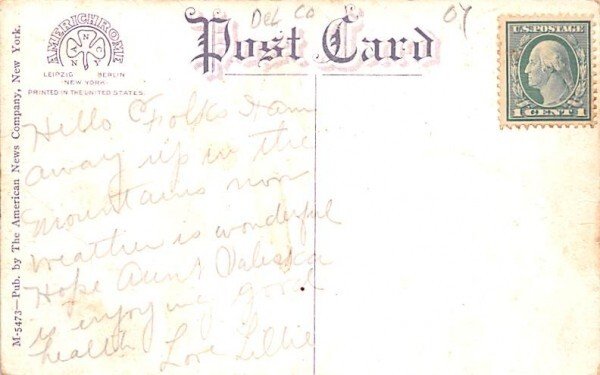 AMERICHROME
ANNC
LEIPZIG BERLIN
NEW YORK
PRINTED IN THE UNITED STATES.
Del Co
Post Card
07
U.S. POSTAGE
1 CENT 1
M-5473—Pub. by The American News Company, New York.
Hello Folks I am
away up in the
mountains now
weather is wonderful
Hope Aunt
is enjoying good
health Love Lillie